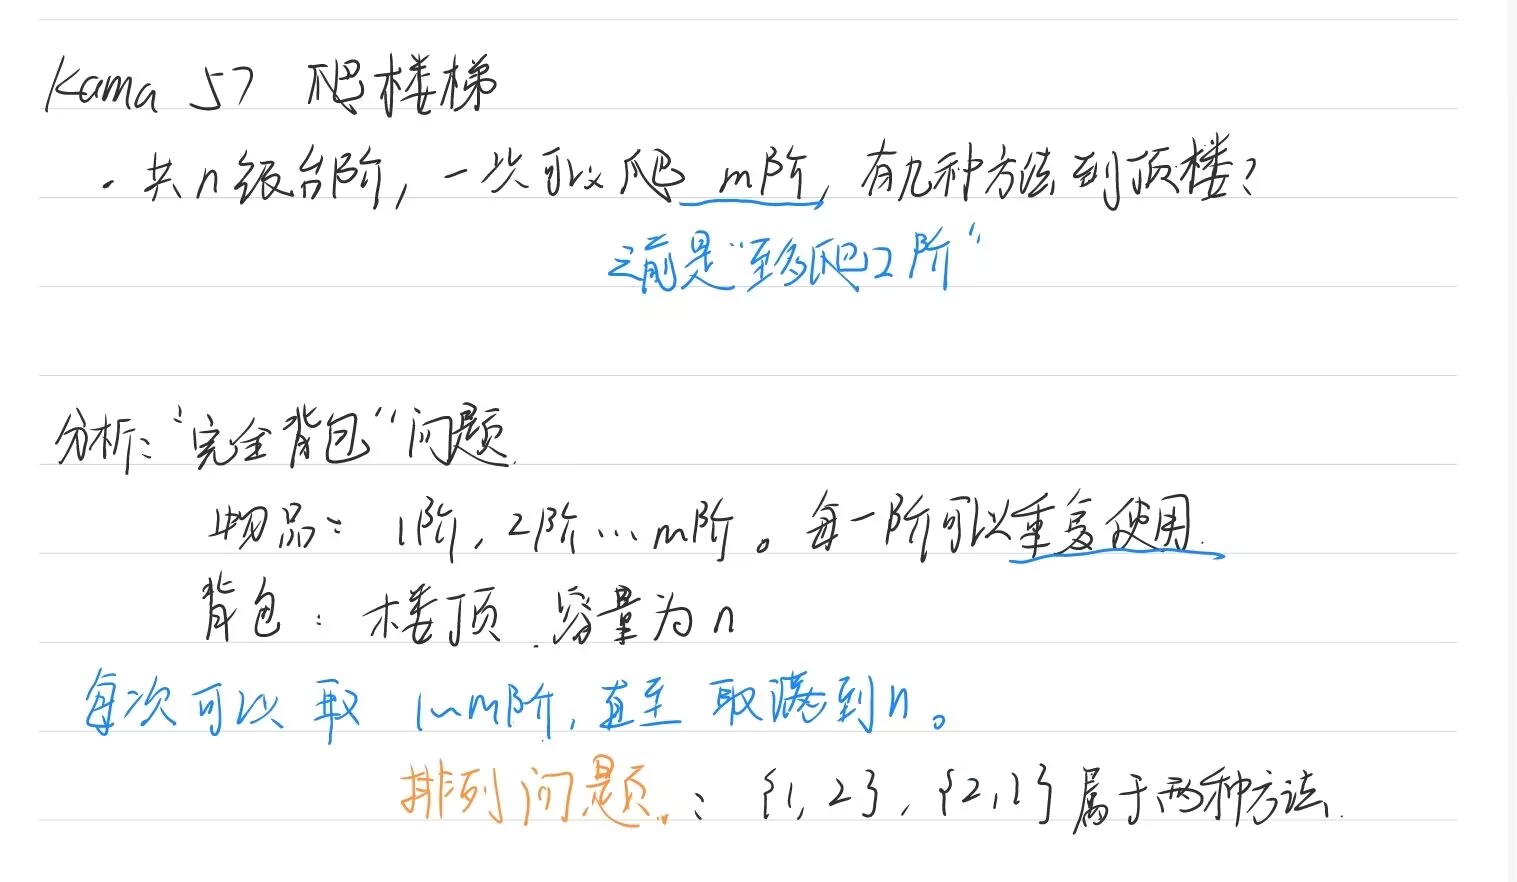 Kama 57 爬楼梯
· 共n级台阶,一次可以爬 m阶,有几种方法到顶楼?
之前是“至多爬2阶”
分析:“完全背包”问题.
物品:1阶,2阶…m阶。每一阶可以重复使用.
背包:楼顶.容量为n
每次可以取 1~m阶,直至取满到n。
排列问题.:{1,2},{2,1}属于两种方法.